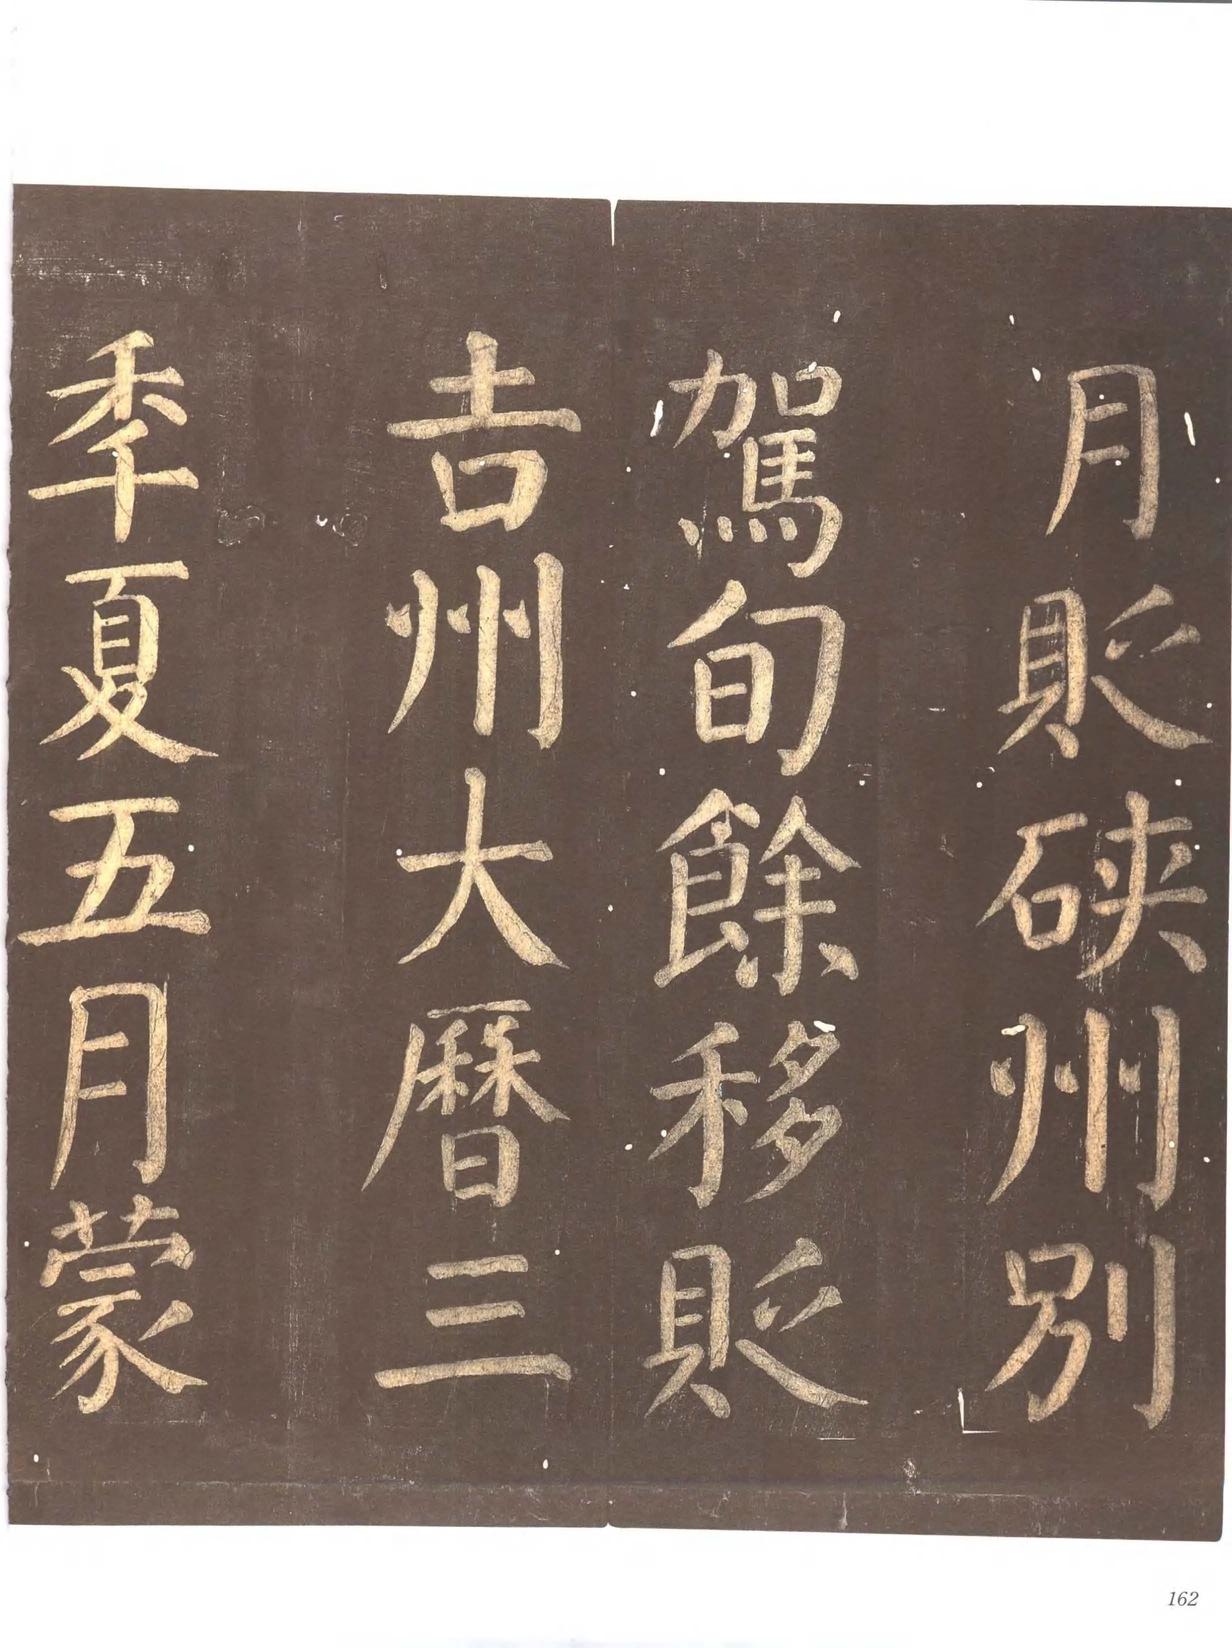 月貶硤州別
駕旬餘移貶
吉州大曆三
季夏五月蒙
162